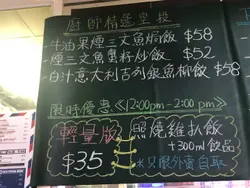 廚師精選空投
牛油果煙三文魚焗飯 $58
煙三文魚粟籽炒飯 $52
白汁意大利吉列銀魚柳飯 $58
限時優惠《12:00pm-2:00pm》
輕量版 照燒雞扒飯
+300ml飲品
$35 *只限外賣自取